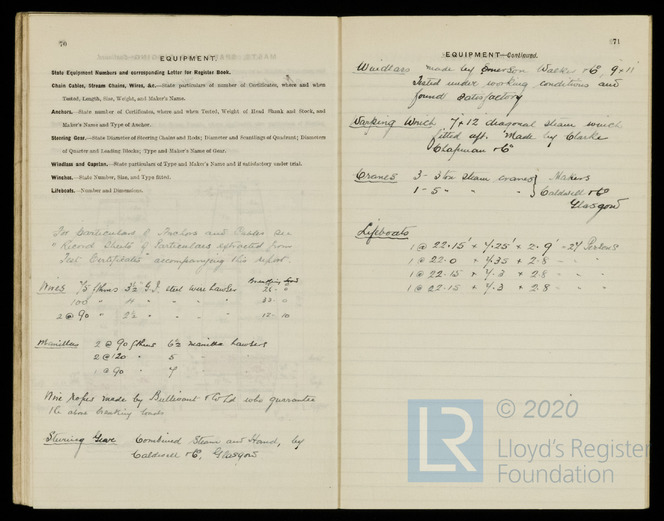 70
EQUIPMENT.
State Equipment Numbers and corresponding Letter for Register Book.
Chain Cables, Stream Chains, Wires, &c.—State particulars of number of Certificates, where and when
Tested, Length, Size, Weight, and Maker's Name.
Anchors.—State number of Certificates, where and when Tested, Weight of Head Shank and Stock, and
Maker's Name and Type of Anchor.
Steering Gear.—State Diameter of Steering Chains and Rods; Diameter and Scantlings of Quadrant; Diameters
of Quarter and Leading Blocks; Type and Maker's Name of Gear.
Windlass and Capstan.—State particulars of Type and Maker's Name and if satisfactory under trial.
Winches.—State Number, Size, and Type fitted.
Lifeboats.—Number and Dimensions.
For Particulars of Anchors and Cables see
"Record Sheets of Particulars extracted from
Test Certificates" accompanying this report.
Breaking
Wires 75 fthms 3½ G.I. steel wire hawser
100 " " " "
2 @ 90 " 2½ " " " 12 - 10
Manillas 2 @ 90 fthms 6½ manilla hawsers
2 @ 120 " 5 " "
1 @ 90 " 7 " "
Wire Ropes made by Bullivant & Co Ltd who guarantee
the above breaking loads
Steering Gear Combined Steam and Hand, by
Caldwell & Co, Glasgow
71
EQUIPMENT—Continued.
Windlass made by Emerson Walker & Co, 9 × 11
Tested under working conditions and
found satisfactory
Warping Winch 7 × 12 diagonal steam winch
fitted aft. Made by Clarke
Chapman & Co
Cranes 3 - 3 ton steam cranes } Makers
1 - 5 " " " } Caldwell & Co
Glasgow
Lifeboats
1 @ 22.15' × 7.25' × 2.9' = 27 Persons
1 @ 22.0 × 7.35 × 2.8 - " "
1 @ 22.15 × 7.3 × 2.8 - " "
1 @ 22.15 × 7.3 × 2.8 - " "
LR
© 2020
Lloyd's Register
Foundation